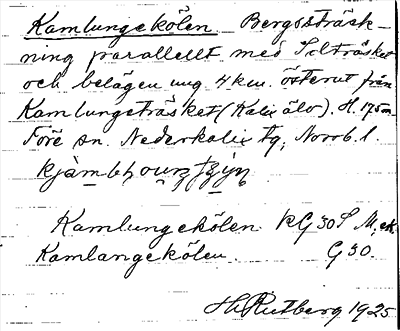 Kamlungekölen Bergssträck-
ning parallellt med Siträsket
och belägen ung 4 km. österut från
Kamlungeträsket (Kalix älv). H. 175 m
Töre sn. Nederkalix tg, Norrb. l.

Kamlungekölen KG 30 S M. ek.
Kamlangekölen. G 30.
H. Rutberg 1925